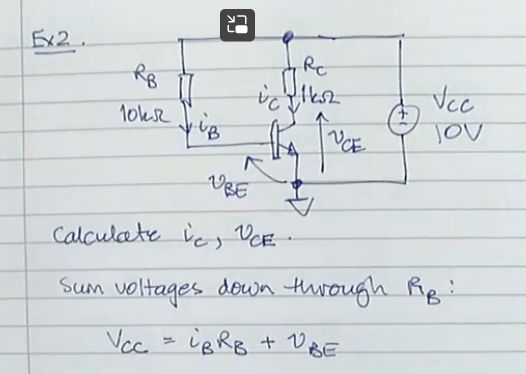 Ex2.
R_B
10kΩ
i_B
R_C
i_C
1kΩ
V_CC
10V
v_CE
v_BE
Calculate i_C, v_CE.
Sum voltages down through R_B:
V_CC = i_B R_B + v_BE